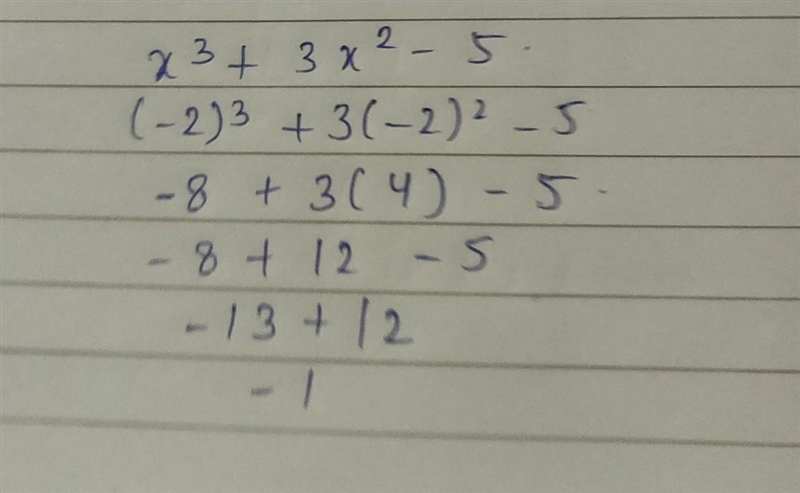 x³ + 3x² - 5
(-2)³ + 3(-2)² - 5
-8 + 3(4) - 5
-8 + 12 - 5
-13 + 12
-1